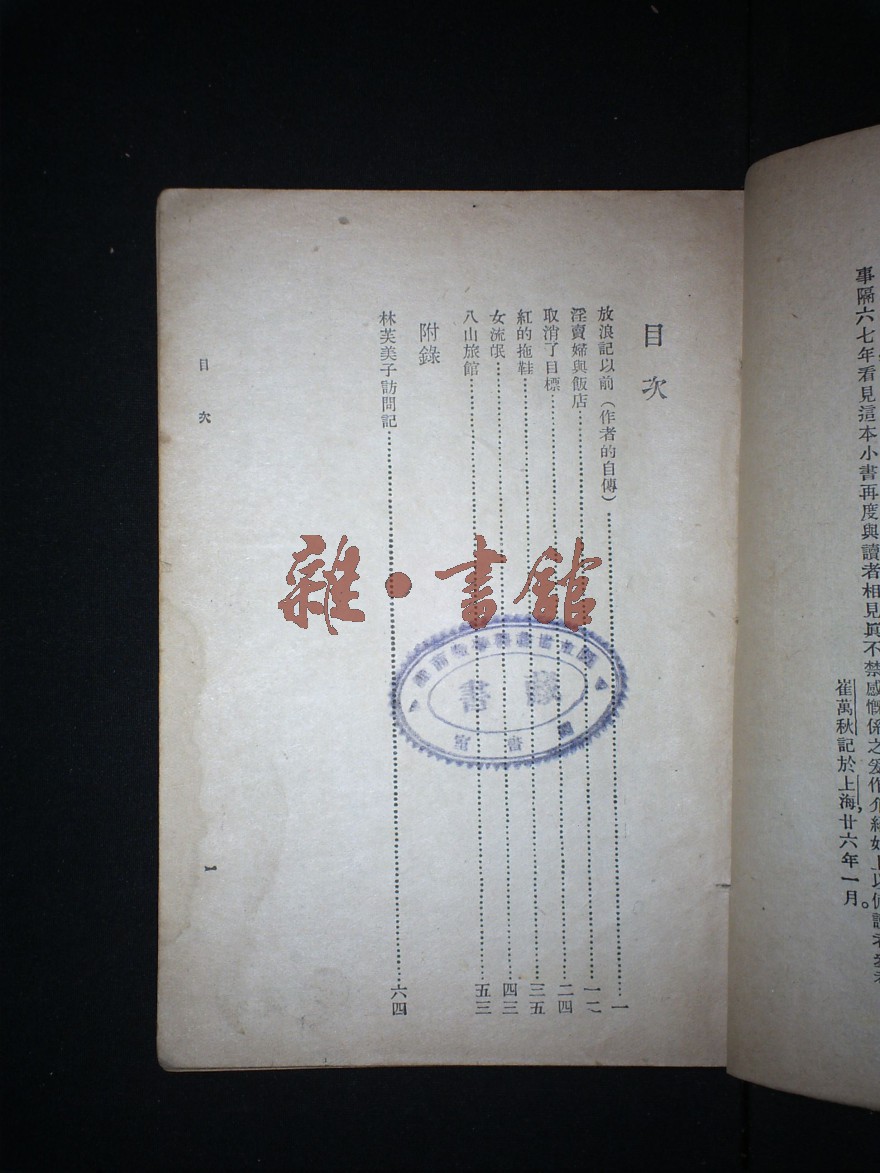 事隔六七年看見這本小書再度與讀者相見眞不禁感慨係之爰作介紹如上以供讀者參考
崔萬秋記於上海廿六年一月。
目次
放浪記以前（作者的自傳）……一
淫賣婦與飯店……一二
取消了目標……二四
紅的拖鞋……三五
女流氓……四三
八山旅館……五三
附錄
林芙美子訪問記……六四
目次
1
雜·書館